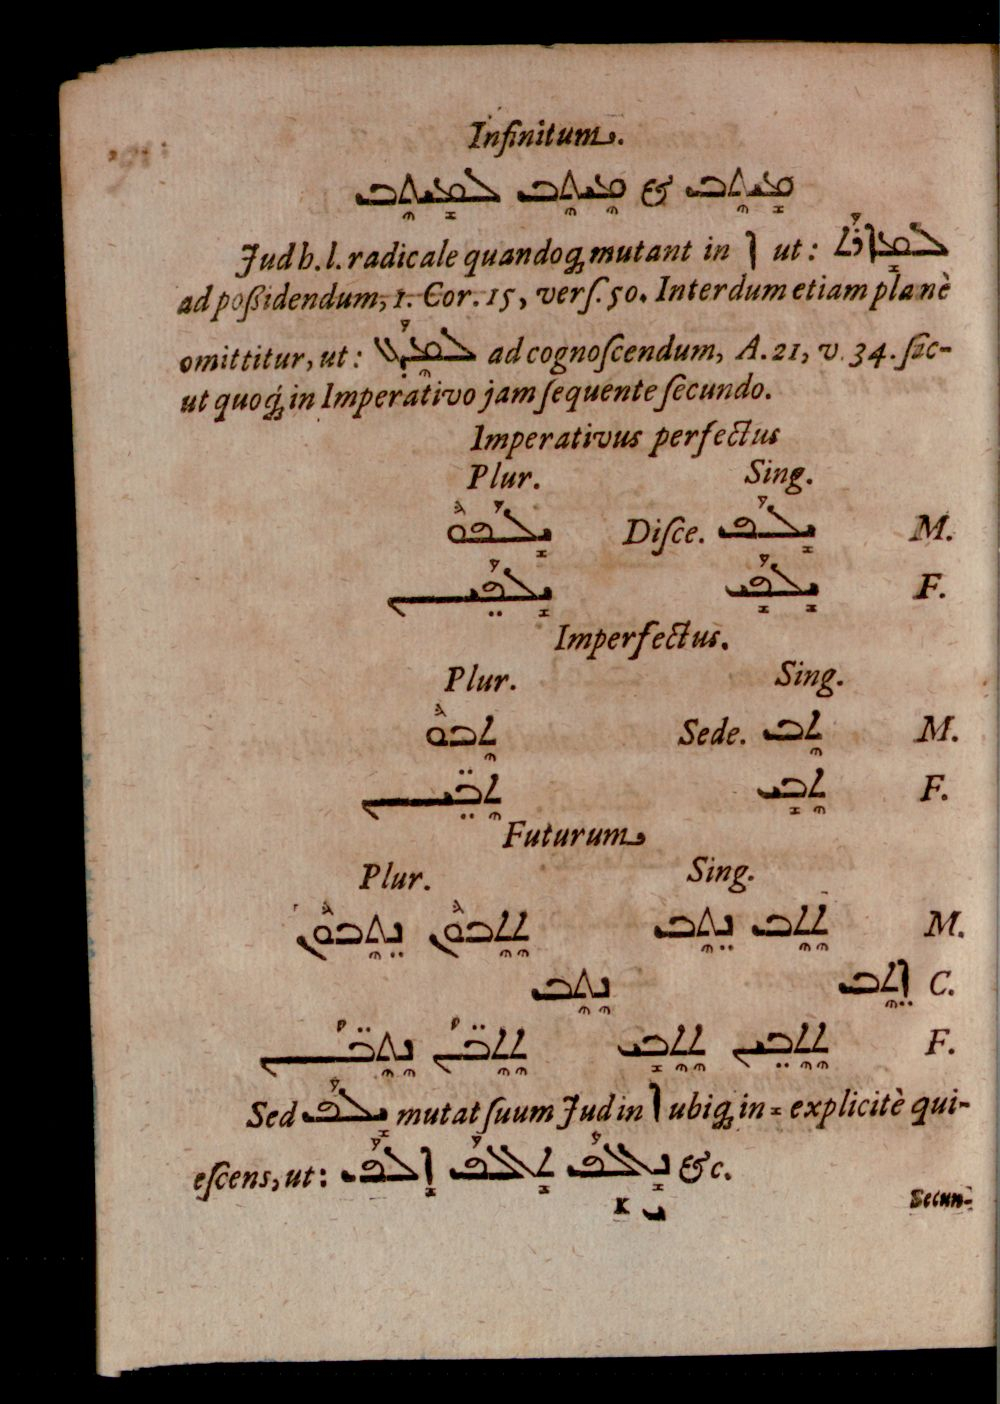 Infinitum.
ܡܺܝܬܶܒ & ܡܶܝܬܶܒ ܠܡܺܝܬܶܒ
Judh. l. radicale quandoq; mutant in ܐ ut: ܠܡܺܐܪܰܬ
ad poßidendum, 1. Cor. 15, vers. 50. Interdum etiam planè
omittitur, ut: ad cognoscendum, A. 21, v. 34. sic-
ut quoq; in Imperativo jam sequente secundo.
Imperativus perfectus
Plur. Sing.
ܝܺܠܰܦܘ Disce. ܝܺܠܰܦ M.
ܝܺܠܰܦܶܝܢ ܝܺܠܰܦܝ F.
Imperfectus.
Plur. Sing.
ܬܶܒܘ Sede. ܬܶܒ M.
ܬܶܒ̈ܶܝܢ ܬܶܒܝ F.
Futurum
Plur. Sing.
ܢܶܬܒܘܢ ܬܶܬܒܘܢ ܢܶܬܶܒ ܬܶܬܶܒ M.
ܢܶܬܶܒ ܐܶܬܶܒ C.
ܢܶܬ̈ܒܳܢ ܬܶܬ̈ܒܳܢ ܬܶܬܒܝ ܬܶܬܒܝܢ F.
Sed ܝܺܠܰܦ mutat suum Jud in ܐ ubiq; in = explicitè qui-
escens, ut: ܐܺܠܰܦ ܬܺܠܰܦ ܢܺܠܰܦ &c.
K Secun-